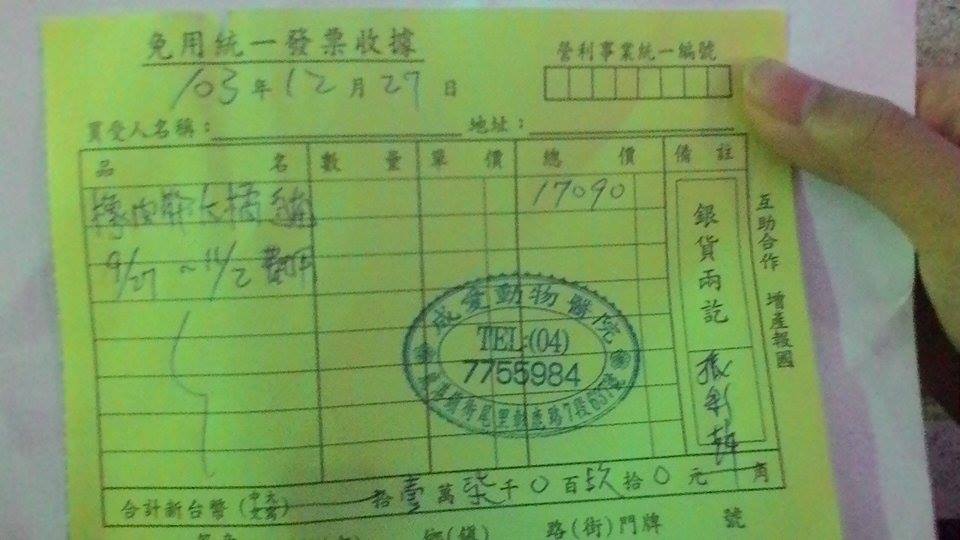 免用統一發票收據
營利事業統一編號
103年12月27日
買受人名稱： 地址：
品名 數量 單價 總價 備註
17090
9/27 ~ 11/2 費用
銀貨兩訖
互助合作 增產報國
成愛動物醫院
TEL:(04)
7755984
合計新台幣(中文大寫) 拾壹萬柒千0百玖拾0元
路(街)門牌 號